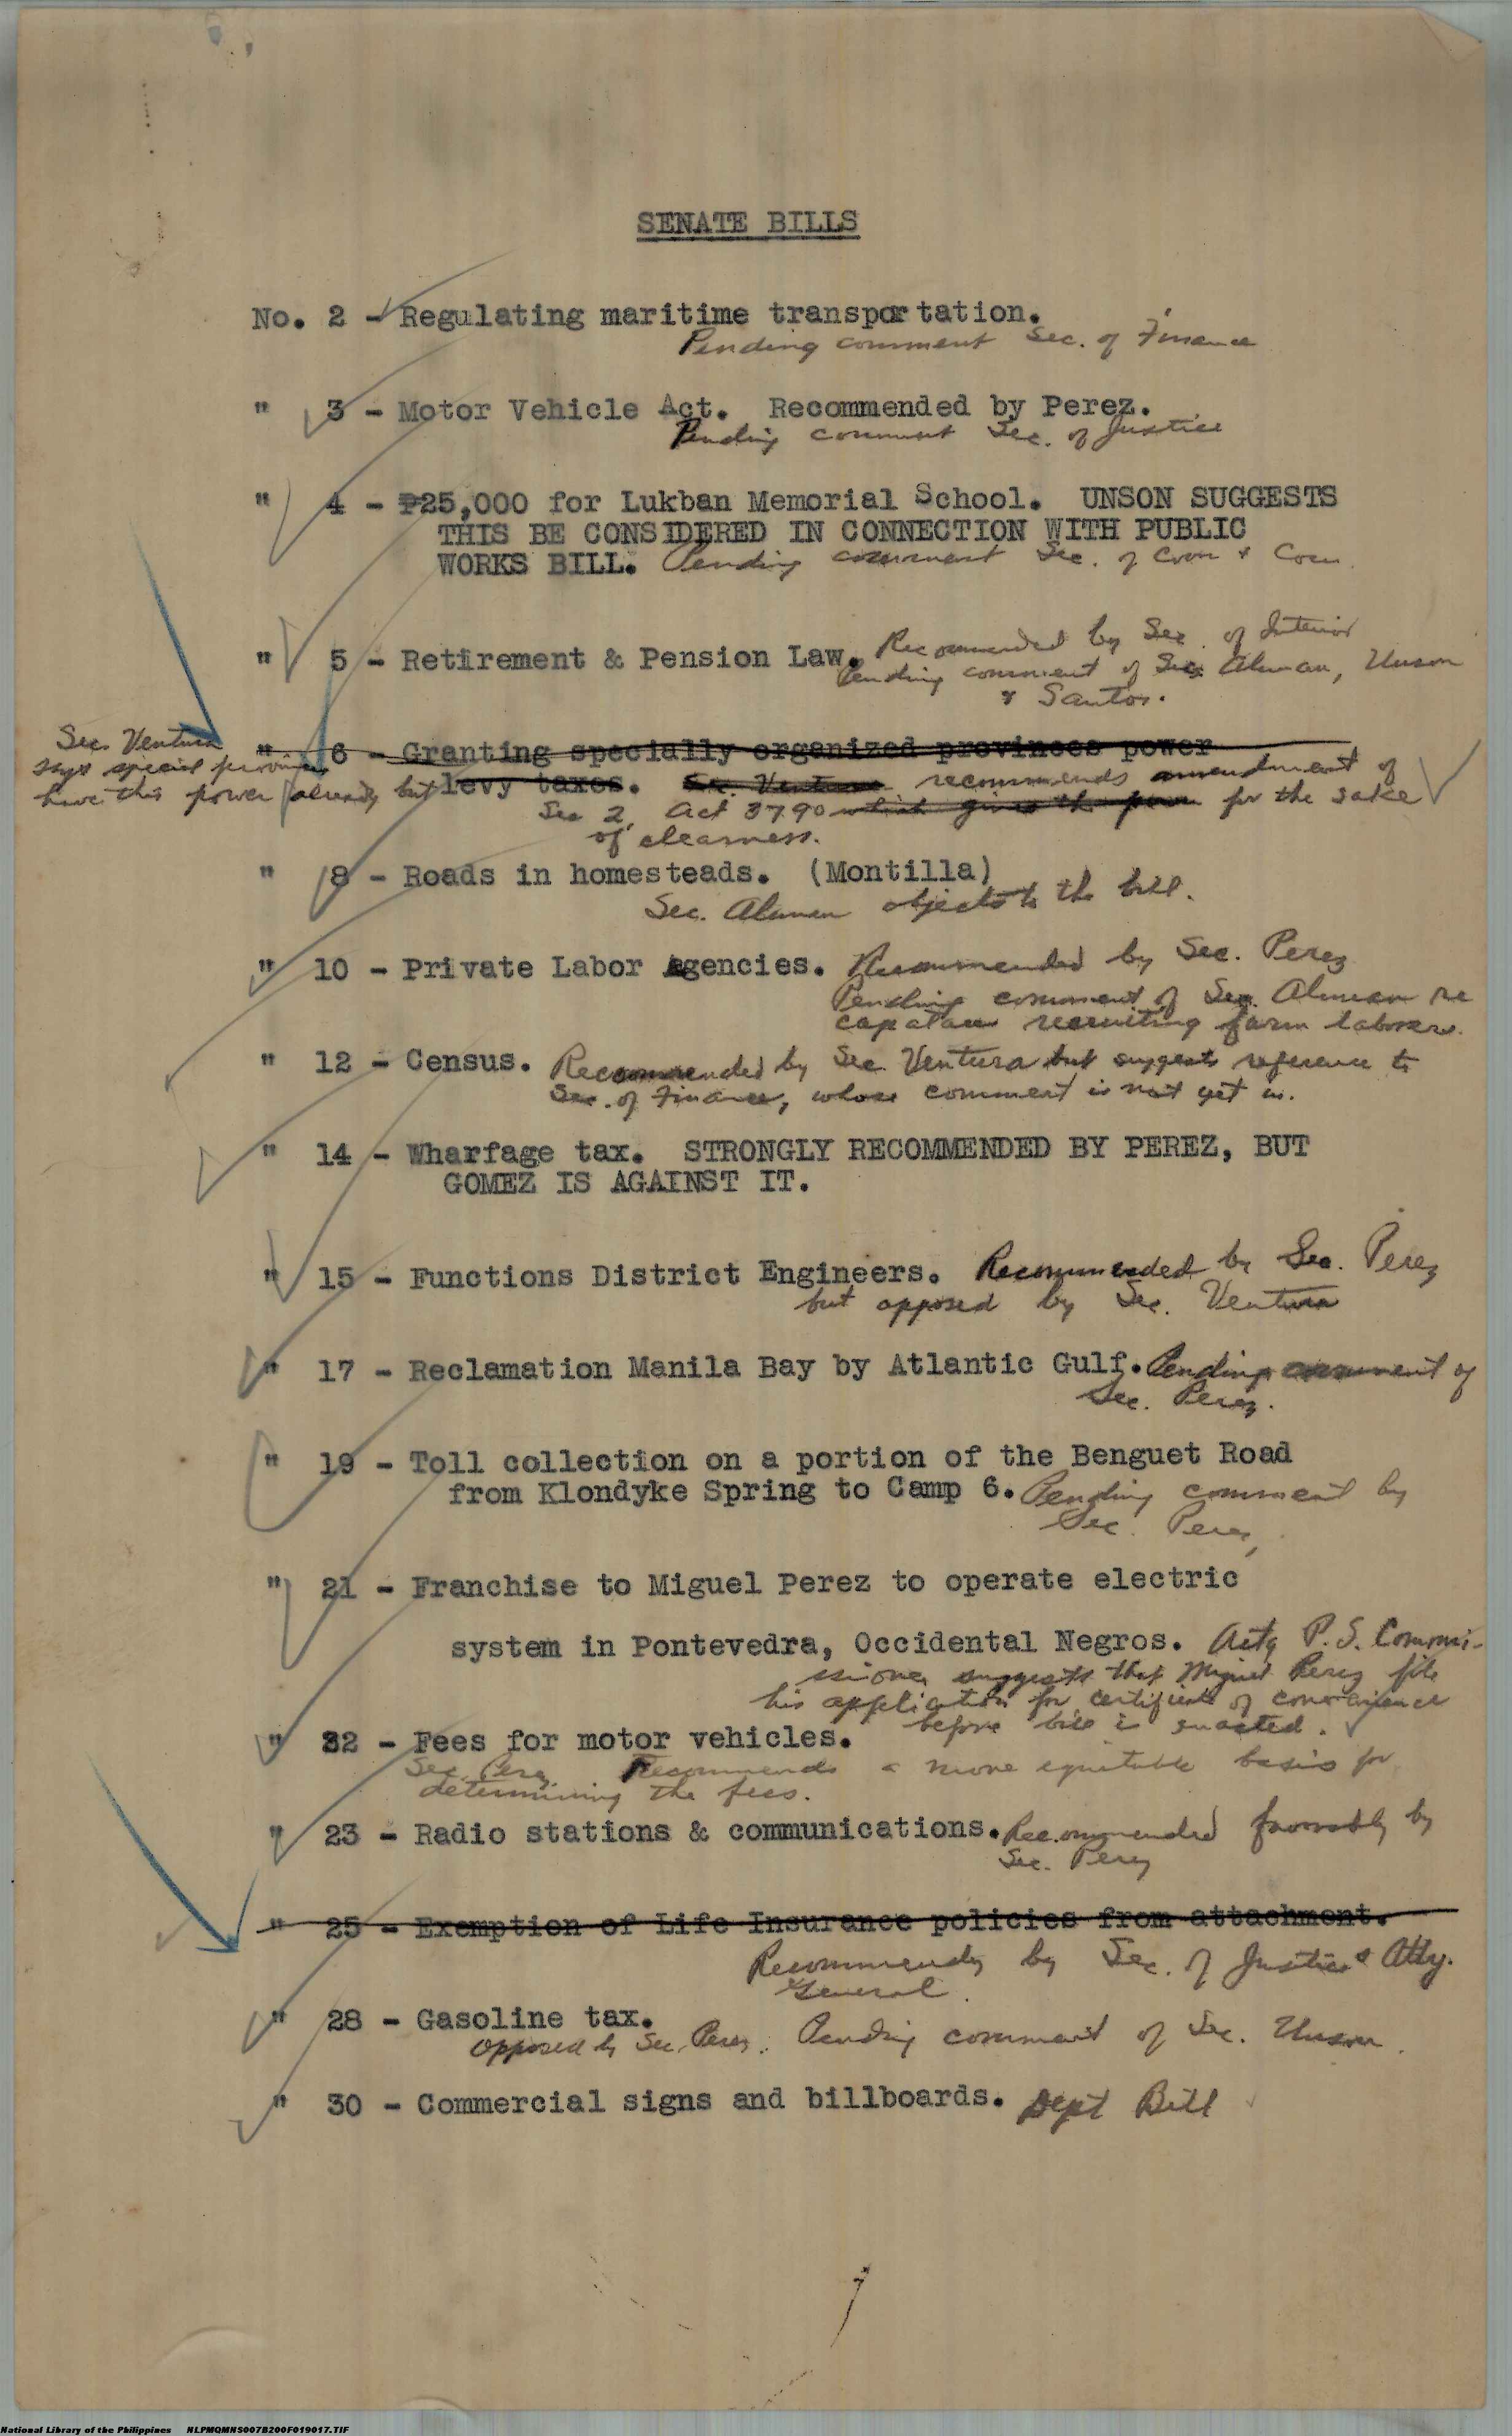 SENATE BILLS
No. 2 - Regulating maritime transportation.
Pending comment Sec. of Finance
" 3 - Motor Vehicle Act. Recommended by Perez.
Pending comment Sec. of Justice
" 4 - ₱25,000 for Lukban Memorial School. UNSON SUGGESTS
THIS BE CONSIDERED IN CONNECTION WITH PUBLIC
WORKS BILL. Pending comment Sec. of Com & Com.
" 5 - Retirement & Pension Law. Recommended by Sec. of Interior
Pending comment of Secs Alunan, Unson
& Santos.
" 6 - Granting specially organized provinces power
Sec. Ventura
says special provinces
levy taxes. Sec. Ventura recommends amendment of
have this power already but
Sec 2, Act 3790 which gives the power for the sake
of clearness.
" 8 - Roads in homesteads. (Montilla)
Sec. Alunan objects to the bill.
" 10 - Private Labor Agencies. Recommended by Sec. Perez
Pending comment of Sec. Alunan re
capataces recruiting farm laborers.
" 12 - Census. Recommended by Sec. Ventura but suggests reference to
Sec. of Finance, whose comment is not yet in.
" 14 - Wharfage tax. STRONGLY RECOMMENDED BY PEREZ, BUT
GOMEZ IS AGAINST IT.
" 15 - Functions District Engineers. Recommended by Sec. Perez
but opposed by Sec. Ventura
" 17 - Reclamation Manila Bay by Atlantic Gulf. Pending comment of
Sec. Perez.
" 19 - Toll collection on a portion of the Benguet Road
from Klondyke Spring to Camp 6. Pending comment by
Sec. Perez,
" 21 - Franchise to Miguel Perez to operate electric
system in Pontevedra, Occidental Negros. Actg P.S. Commi-
ssioner suggests that Miguel Perez file
his application for certificate of convenience
before bill is enacted.
" 22 - Fees for motor vehicles.
Sec. Perez Recommends a more equitable basis for
determining the fees.
" 23 - Radio stations & communications. Recommended favorably by
Sec. Perez
" 25 - Exemption of Life Insurance policies from attachment.
Recommended by Sec. of Justice & Atty.
General.
" 28 - Gasoline tax.
Opposed by Sec. Perez. Pending comment of Sec. Unson.
" 30 - Commercial signs and billboards. Dept Bill
National Library of the Philippines NLPMQMNS007B200F019017.TIF